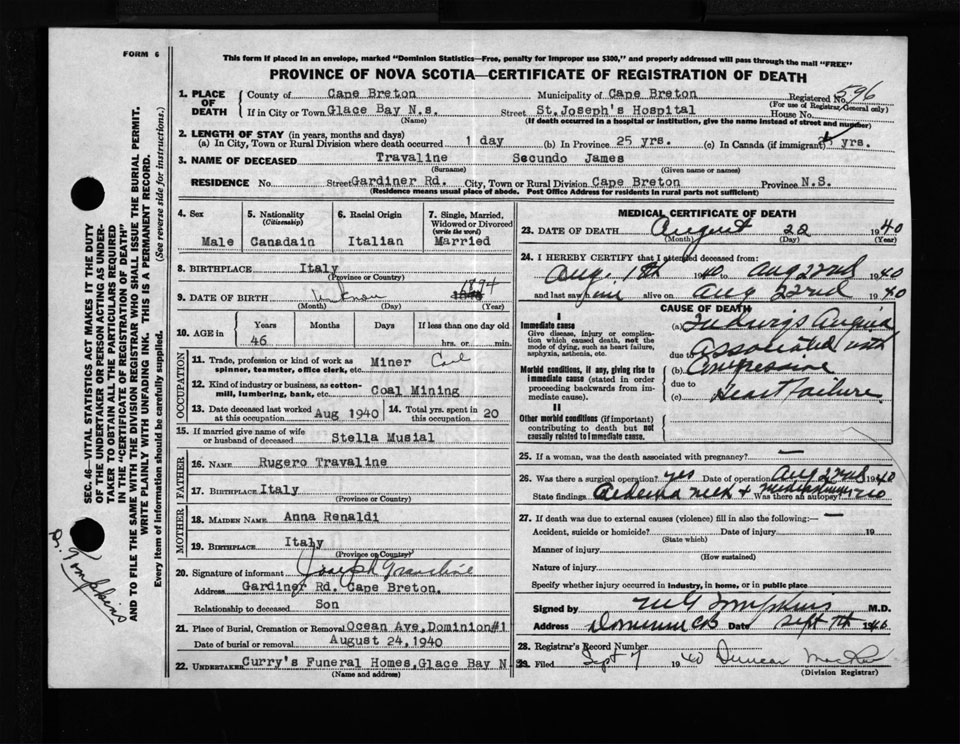 FORM 6
This form if placed in an envelope, marked "Dominion Statistics—Free, penalty for improper use $300," and properly addressed will pass through the mail "FREE"
PROVINCE OF NOVA SCOTIA—CERTIFICATE OF REGISTRATION OF DEATH
SEC. 46—VITAL STATISTICS ACT MAKES IT THE DUTY
OF THE UNDERTAKER OR PERSON ACTING AS UNDER-
TAKER TO OBTAIN ALL THE PARTICULARS REQUIRED
IN THE "CERTIFICATE OF REGISTRATION OF DEATH"
AND TO FILE THE SAME WITH THE DIVISION REGISTRAR WHO SHALL ISSUE THE BURIAL PERMIT.
WRITE PLAINLY WITH UNFADING INK. THIS IS A PERMANENT RECORD.
Every item of information should be carefully supplied. (See reverse side for instructions.)
D. Tompkins
1. PLACE OF DEATH
County of Cape Breton Municipality of Cape Breton Registered No. 596
(For use of Registrar General only)
If in City or Town Glace Bay N.s. Street St.Joseph's Hospital House No.
(Name) (If death occurred in a hospital or institution, give the name instead of street and number)
2. LENGTH OF STAY (in years, months and days)
(a) In City, Town or Rural Division where death occurred 1 day (b) In Province 25 yrs. (c) In Canada (if immigrant) yrs.
3. NAME OF DECEASED Travaline Secundo James
(Surname) (Given name or names)
RESIDENCE No. Street Gardiner Rd. City, Town or Rural Division Cape Breton Province N.S.
(Residence means usual place of abode. Post Office Address for residents in rural parts not sufficient)
4. Sex Male
5. Nationality (Citizenship) Canadain
6. Racial Origin Italian
7. Single, Married, Widowed or Divorced (write the word) Married
8. BIRTHPLACE Italy
(Province or Country)
9. DATE OF BIRTH Unknown 1894
(Month) (Day) (Year)
10. AGE in Years Months Days If less than one day old
46 hrs. or min.
OCCUPATION
11. Trade, profession or kind of work as spinner, teamster, office clerk, etc. Miner Coal
12. Kind of industry or business, as cotton-mill, lumbering, bank, etc. Coal Mining
13. Date deceased last worked at this occupation Aug 1940 14. Total yrs. spent in this occupation 20
15. If married give name of wife or husband of deceased Stella Musial
FATHER
16. NAME Rugero Travaline
17. BIRTHPLACE Italy
(Province or Country)
MOTHER
18. MAIDEN NAME Anna Renaldi
19. BIRTHPLACE Italy
(Province or Country)
20. Signature of informant Joseph Travaline
Address Gardiner Rd. Cape Breton.
Relationship to deceased Son
21. Place of Burial, Cremation or Removal Ocean Ave,Dominion#1
Date of burial or removal August 24,1940
22. UNDERTAKER Curry's Funeral Homes,Glace Bay N.
(Name and address)
MEDICAL CERTIFICATE OF DEATH
23. DATE OF DEATH August 22 1940
(Month) (Day) (Year)
24. I HEREBY CERTIFY that I attended deceased from:
Aug. 18th 1940 to Aug 22nd 1940
and last saw him alive on Aug 22nd 1940
CAUSE OF DEATH
I
Immediate cause
Give disease, injury or complication which caused death, not the mode of dying, such as heart failure, asphyxia, asthenia, etc.
(a) Ludwigs Angina
due to Associated with
Morbid conditions, if any, giving rise to immediate cause (stated in order proceeding backwards from immediate cause).
(b)
due to
(c) Heart Failure
II
Other morbid conditions (if important) contributing to death but not causally related to immediate cause.
25. If a woman, was the death associated with pregnancy? —
26. Was there a surgical operation? yes Date of operation Aug 22nd 1940
State findings neck + Was there an autopsy? no
27. If death was due to external causes (violence) fill in also the following:— —
Accident, suicide or homicide? Date of injury 19
(State which)
Manner of injury
(How sustained)
Nature of injury
Specify whether injury occurred in industry, in home, or in public place
Signed by M G Tompkins M.D.
Address Dominion CB Date Sept 7th 1940
28. Registrar's Record Number
29. Filed Sept 7 1940 Duncan
(Division Registrar)